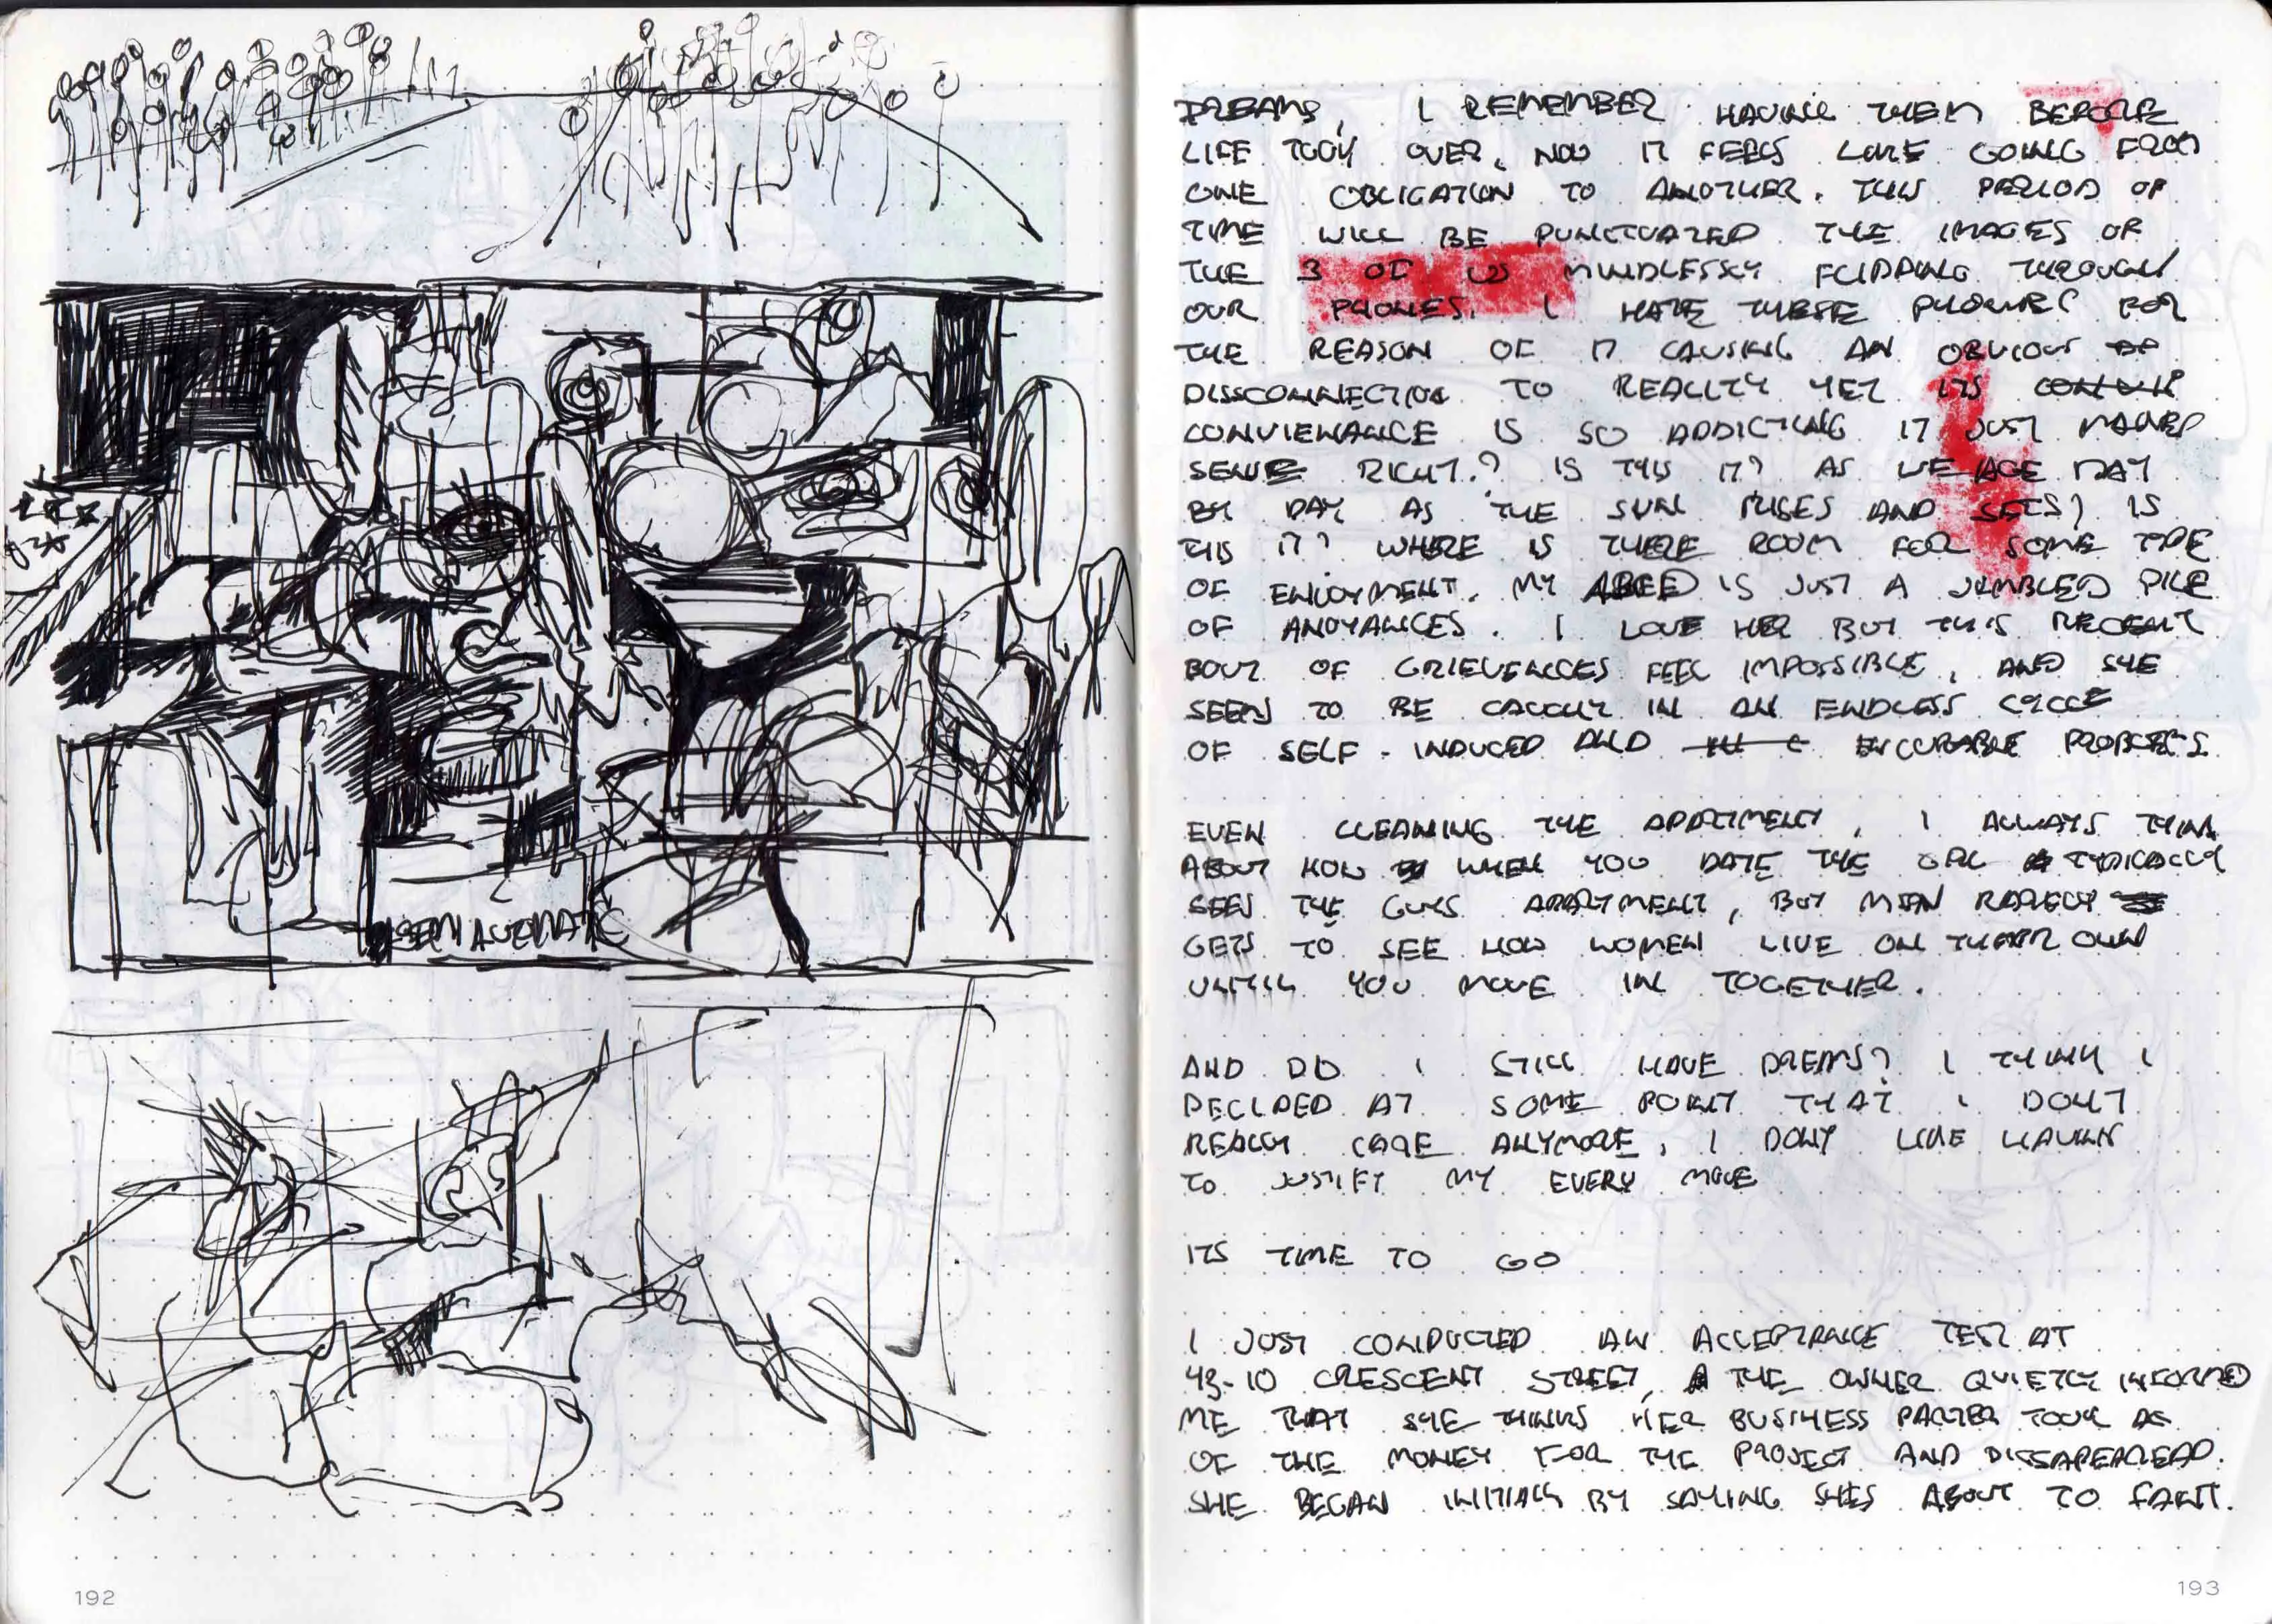 SEMI AUTOMATIC
192
DREAMS, I REMEMBER HAVING THEM BEFORE
LIFE TOOK OVER, NOW IT FEELS LIKE GOING FROM
ONE OBLIGATION TO ANOTHER. THIS PERIOD OF
TIME WILL BE PUNCTUATED THE IMAGES OF
THE 3 OF US MINDLESSLY FLIPPING THROUGH
OUR PHONES. I HATE THESE PHONES FOR
THE REASON OF IT CAUSING AN OBVIOUS
DISSCONNECTION TO REALITY YET ITS
CONVIENANCE IS SO ADDICTING IT JUST MAKES
SENSE RIGHT? IS THIS IT? AS WE AGE DAY
BY DAY AS THE SUN RISES AND SETS? IS
THIS IT? WHERE IS THERE ROOM FOR SOME TYPE
OF ENJOYMENT. MY IS JUST A JUMBLED PILE
OF ANOYANCES. I LOVE HER BUT THIS RECENT
BOUT OF GRIEVENCES FEEL IMPOSSIBLE, AND SHE
SEEMS TO BE CAUGHT IN AN ENDLESS CYCLE
OF SELF-INDUCED AND ENCURABLE PROBLEMS.
EVEN CLEANING THE APARTMENT, I ALWAYS THINK
ABOUT HOW WHEN YOU DATE THE GIRL TYPICALLY
SEES THE GUYS APARTMENT, BUT MEN RARELY
GETS TO SEE HOW WOMEN LIVE ON THEIR OWN
UNTILL YOU MOVE IN TOGETHER.
AND DO I STILL HAVE DREAMS? I THINK I
DECIDED AT SOME POINT THAT I DON'T
REALLY CARE ANYMORE, I DONT LIKE HAVING
TO JUSTIFY MY EVERY MOVE
ITS TIME TO GO
I JUST CONDUCTED AN ACCEPTANCE TEST AT
43-10 CRESCENT STREET, THE OWNER QUIETLY INFORMED
ME THAT SHE THINKS HER BUSINESS PARTER TOOK
OF THE MONEY FOR THE PROJECT AND DISSAPEARED.
SHE BEGAN INITIALLY BY SAYING SHES ABOUT TO FAINT.
193